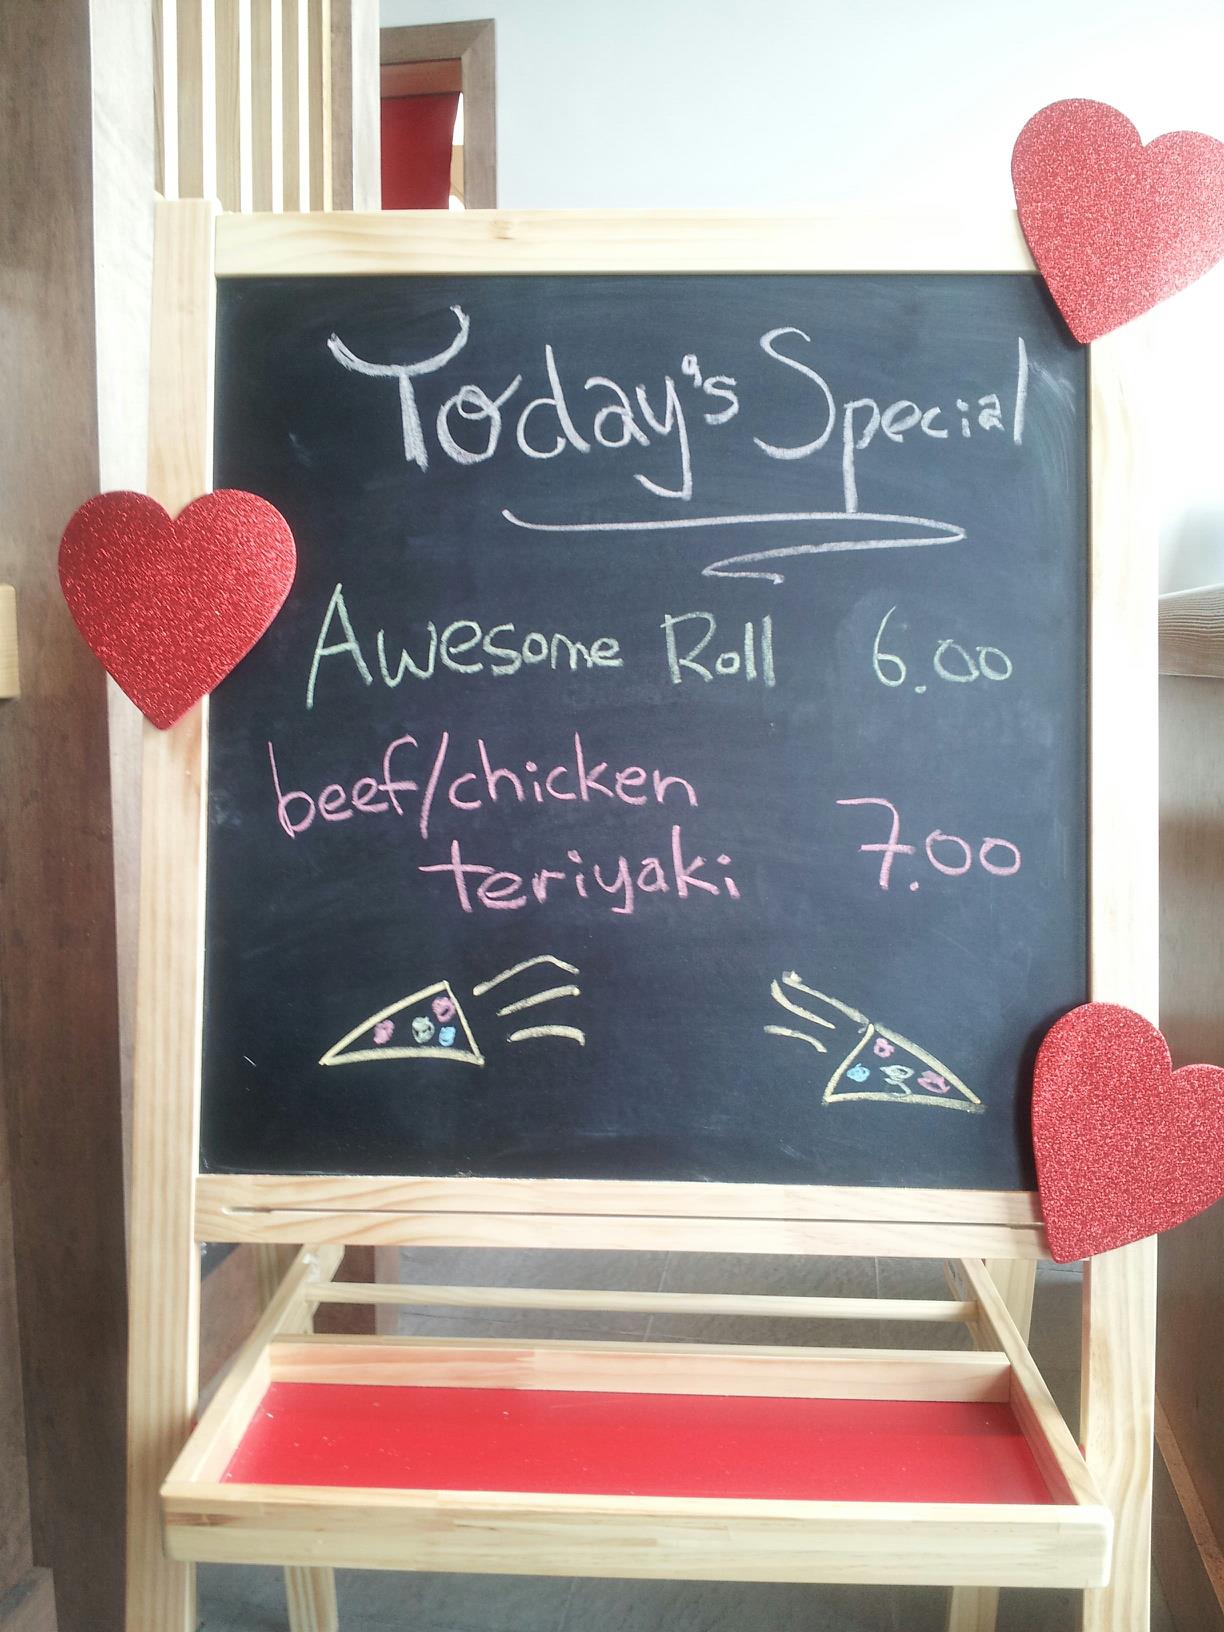 Today's Special
Awesome Roll 6.00
beef/chicken
teriyaki 7.00